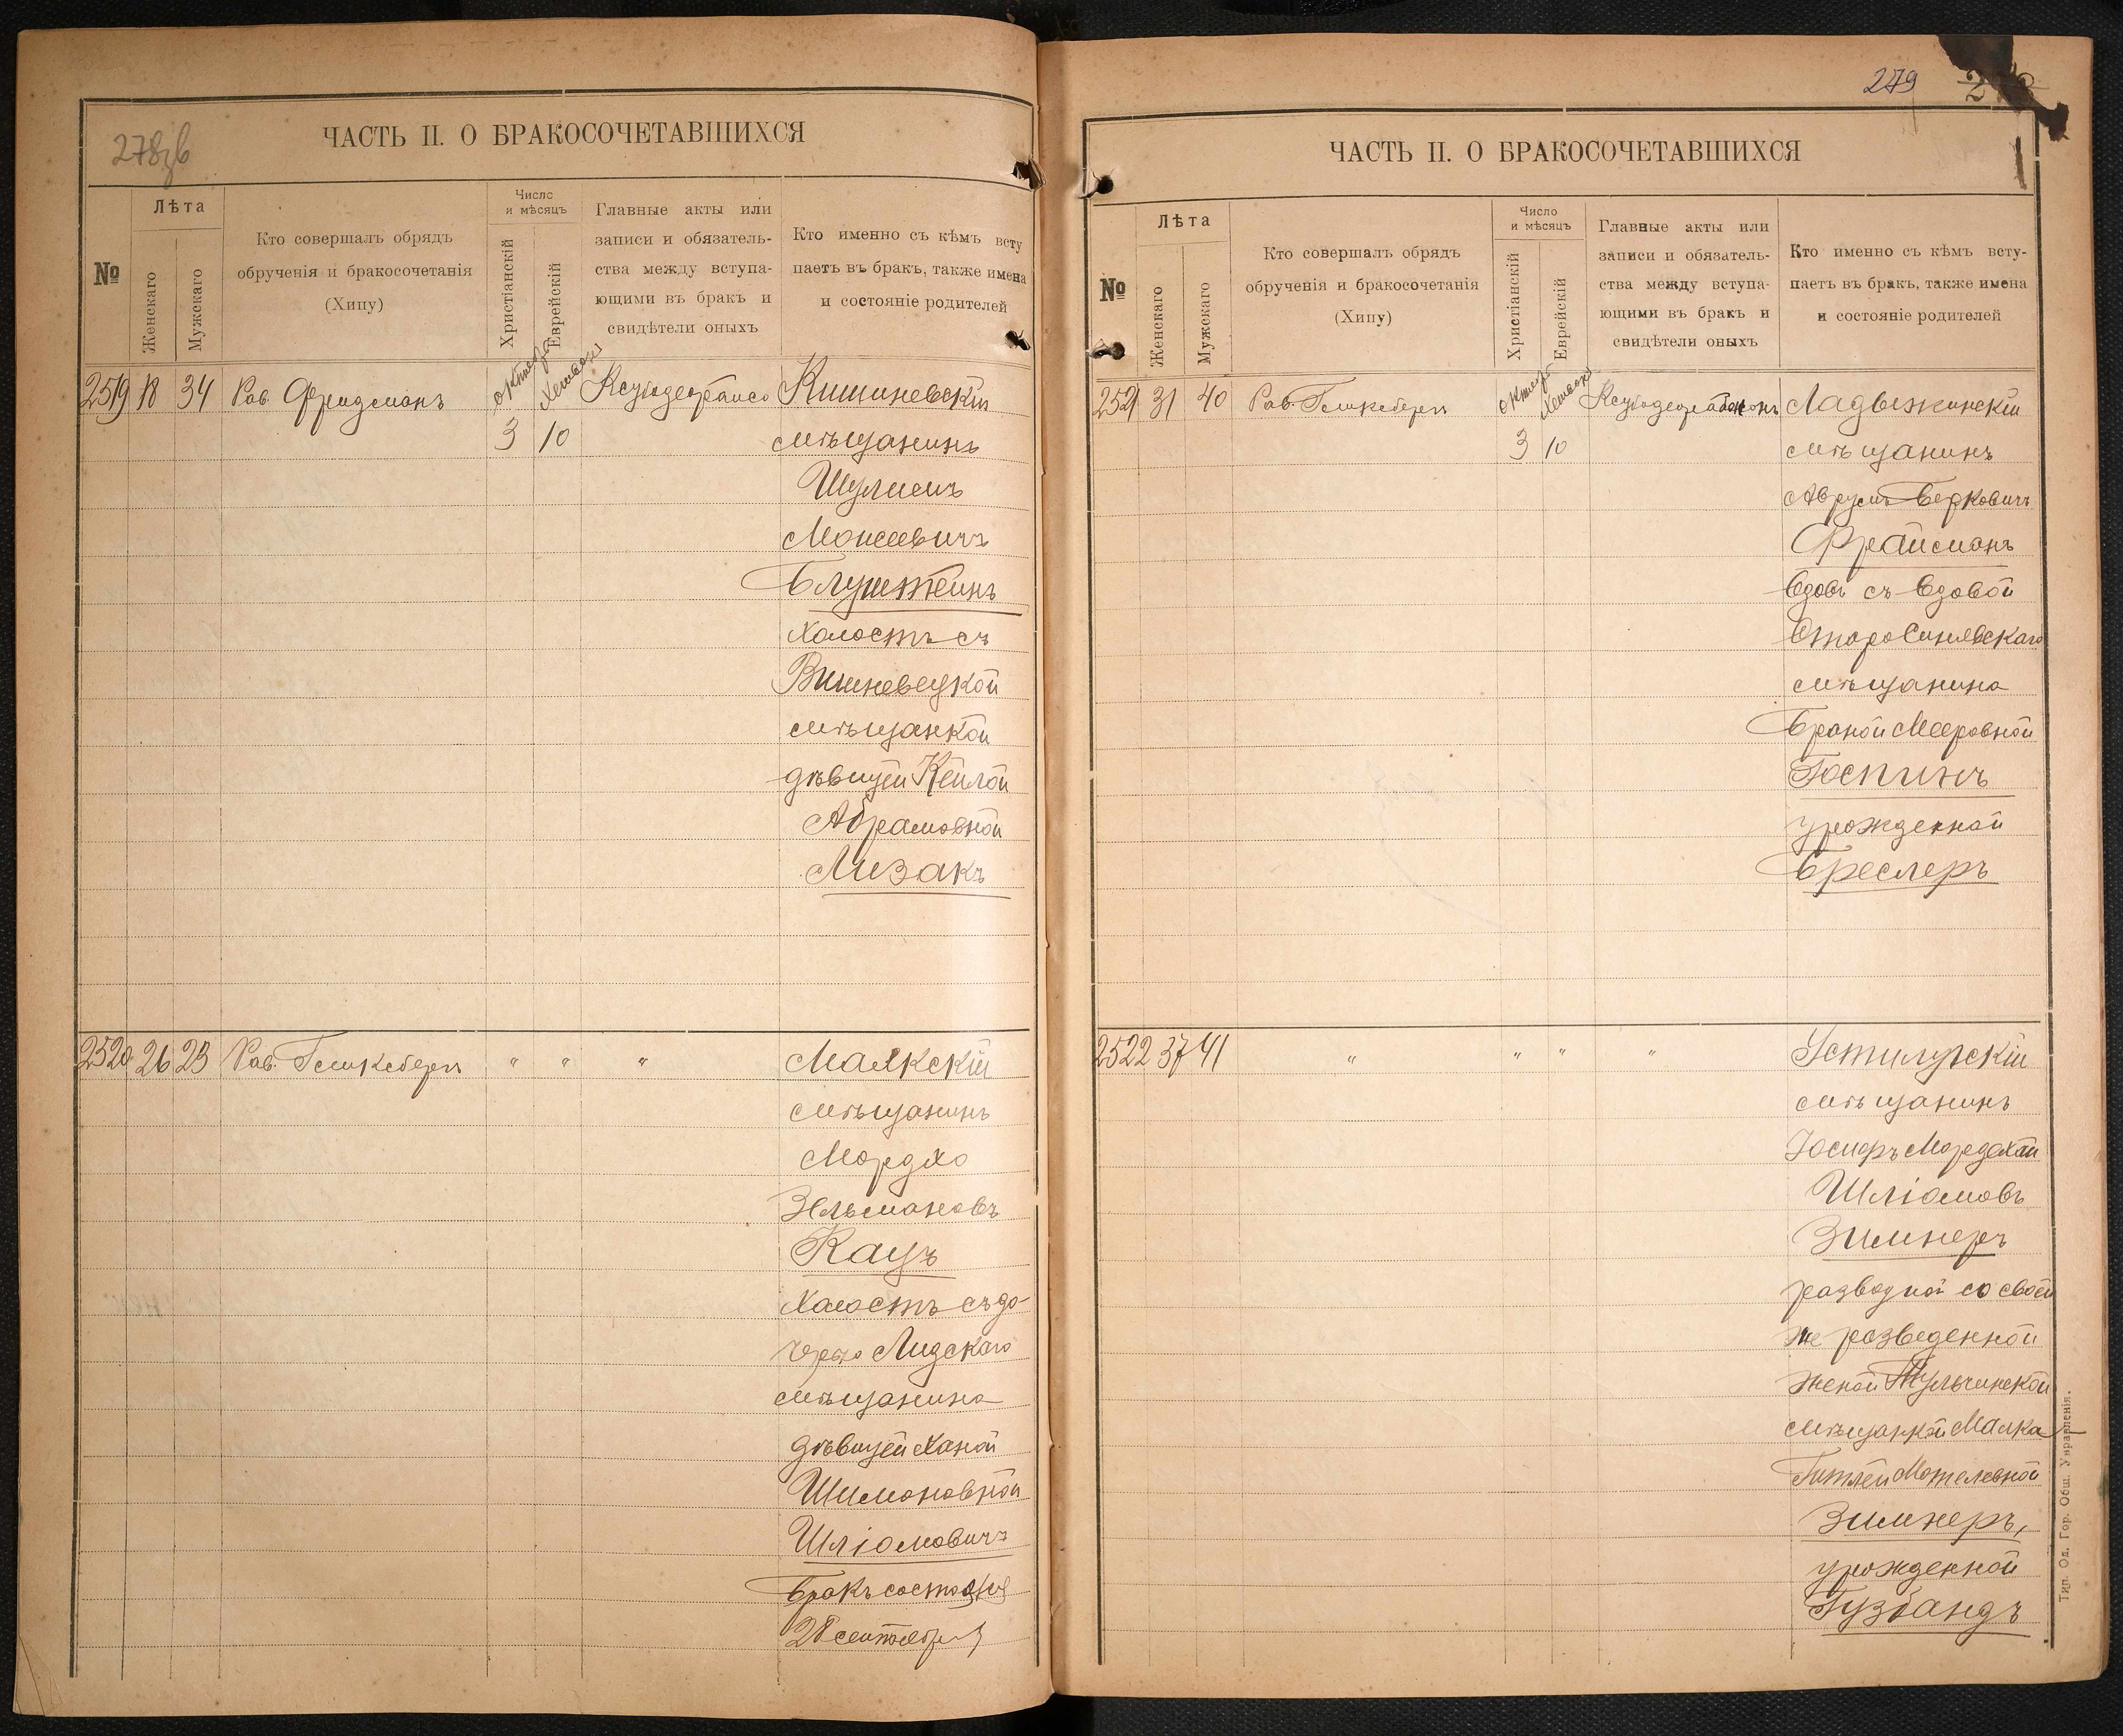 278зв
ЧАСТЬ II. О БРАКОСОЧЕТАВШИХСЯ
№
Лѣта
Женскаго
Мужскаго
Кто совершалъ обрядъ
обрученія и бракосочетанія
(Хипу)
Число
и мѣсяцъ
Христіанскій
Еврейскій
Главные акты или
записи и обязатель-
ства между вступа-
ющими въ бракъ и
свидѣтели оныхъ
Кто именно съ кѣмъ всту
паетъ въ бракъ, также имена
и состояніе родителей
2519 18 34 Рав. Фридманъ
3 10
Кишиневскій
мѣщанинъ
Шулимъ
Моисеевичъ
Блуштейнъ
холостъ съ
Вишневецкой
мѣщанкой
дѣвицей Кейлой
Абрамовной
Лизакъ
2520 26 23 Рав. " " "
Маякскій
мѣщанинъ
Мордко
Зельмановъ
Кацъ
холостъ съ до-
черью Лидскаго
мѣщанина
дѣвицей Ханой
Шимоновной
Шліомовичъ
бракъ состоялся
28 сентября
279
ЧАСТЬ II. О БРАКОСОЧЕТАВШИХСЯ
№
Лѣта
Женскаго
Мужскаго
Кто совершалъ обрядъ
обрученія и бракосочетанія
(Хипу)
Число
и мѣсяцъ
Христіанскій
Еврейскій
Главные акты или
записи и обязатель-
ства между вступа-
ющими въ бракъ и
свидѣтели оныхъ
Кто именно съ кѣмъ всту-
паетъ въ бракъ, также имена
и состояніе родителей
2521 31 40 Рав.
3 10
Ладыжинскій
мѣщанинъ
Аврумъ Берковичъ
Фрайманъ
вдовъ съ вдовой
СтароСинявскаго
мѣщанина
Браной Мееровной
Госпинъ
урожденной
Бреслеръ
2522 37 41 " " " "
Устилугскій
мѣщанинъ
Іосифъ Мордехай
Шліомовъ
Зимнеръ
разводной со своей
же разведенной
женой Тульчинской
мѣщанкой Малка
Гитлей Мотелевной
Зимнеръ,
урожденной
Гузбандъ
Тип. Од. Гор. Общ. Управленія.